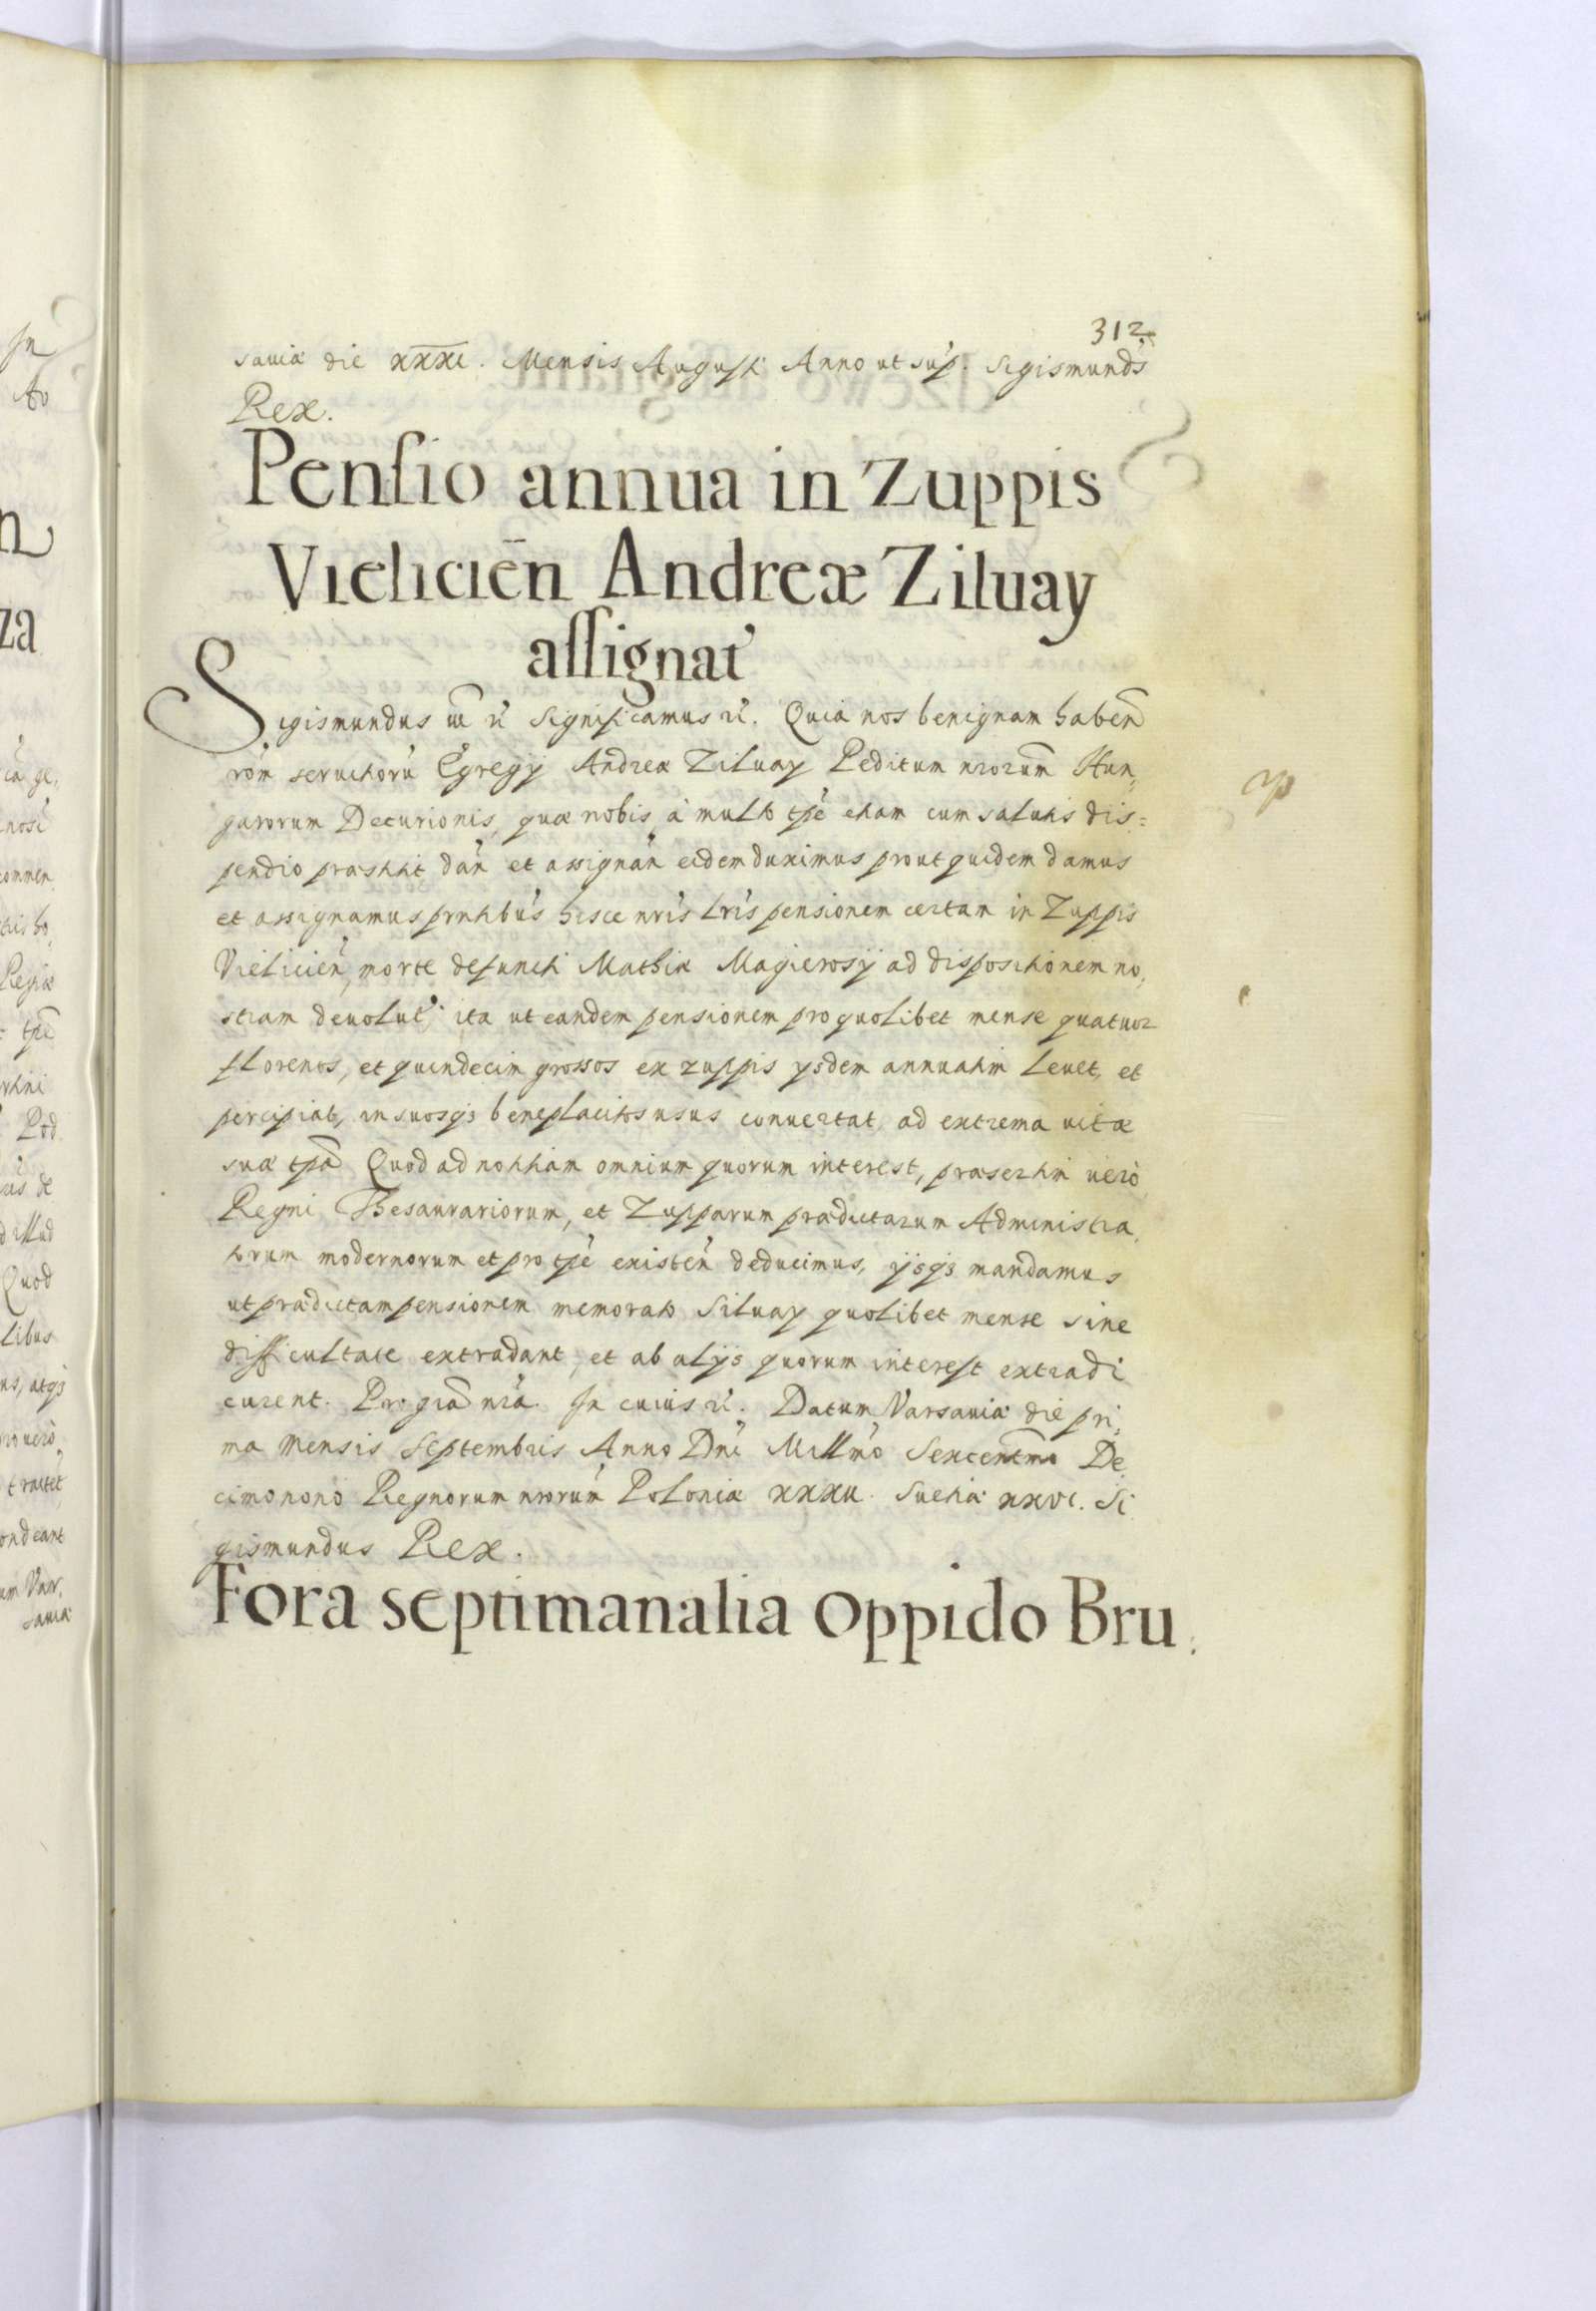 312
sauiæ die xxxi. Mensis Augusti Anno ut sup. Sigismunds
Rex.
Pensio annua in Zuppis
Vielicien̄ Andreæ Ziluay
assignat
Sigismundus Significamus Quia nos benignam haben̄
rōn seruitorū Egregÿ Andreæ Ziluay Peditum nrorum Hun,
garorum Decurionis, quæ nobis à multo tpē etiam cum salutis dis=
pendio præstitit dān et assignān eidem duximus prout quidem damus
et assignamus prntibus hisce nris lris pensionem certam in Zuppis
Vielicień, morte defuncti Mathiæ Magierosÿ ad dispositionem no,
stram deuolut ita ut eandem pensionem pro quolibet mense quatuor
florenos, et quindecim grossos ex zuppis ysdem annuatim leuet, et
percipiat, in suosq3 beneplacitos usus conuertat, ad extrema uitæ
suæ tpā Quod ad notitiam omnium quorum interest, præsertim uerò
Regni Thesaurariorum, et Zupparum prædictarum Administra,
torum modernorum et pro tpē existeń deducimus, ijsq3 mandamus
ut prædictam pensionem memorato Siluay quolibet mense sine
difficultate extradant, et ab alijs quorum interest extradi
curent. Pro grā nrā. In cuius rī. Datum Varsauiæ die pri,
ma Mensis Septembris Anno Dnī Millmo Sexcentmo De
cimonono Regnorum nrorum Poloniæ xxxii. Sueciæ xxvi. Si
gismundus Rex.
Fora septimanalia oppido Bru,